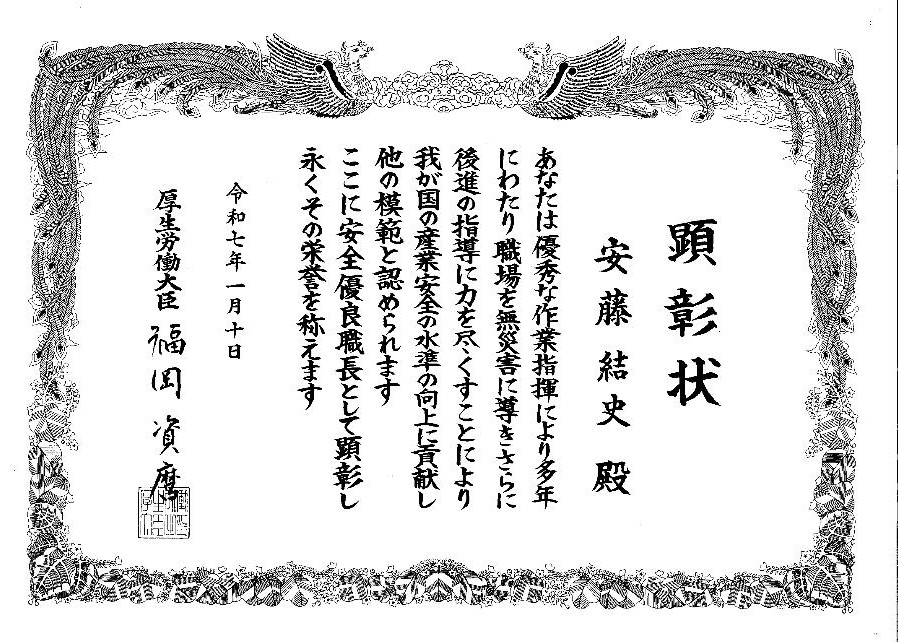 顕彰状
安藤結史殿
あなたは優秀な作業指揮により多年
にわたり職場を無災害に導きさらに
後進の指導に力を尽くすことにより
我が国の産業安全の水準の向上に貢献し
他の模範と認められます
ここに安全優良職長として顕彰し
永くその栄誉を称えます
令和七年一月十日
厚生労働大臣 福岡資麿